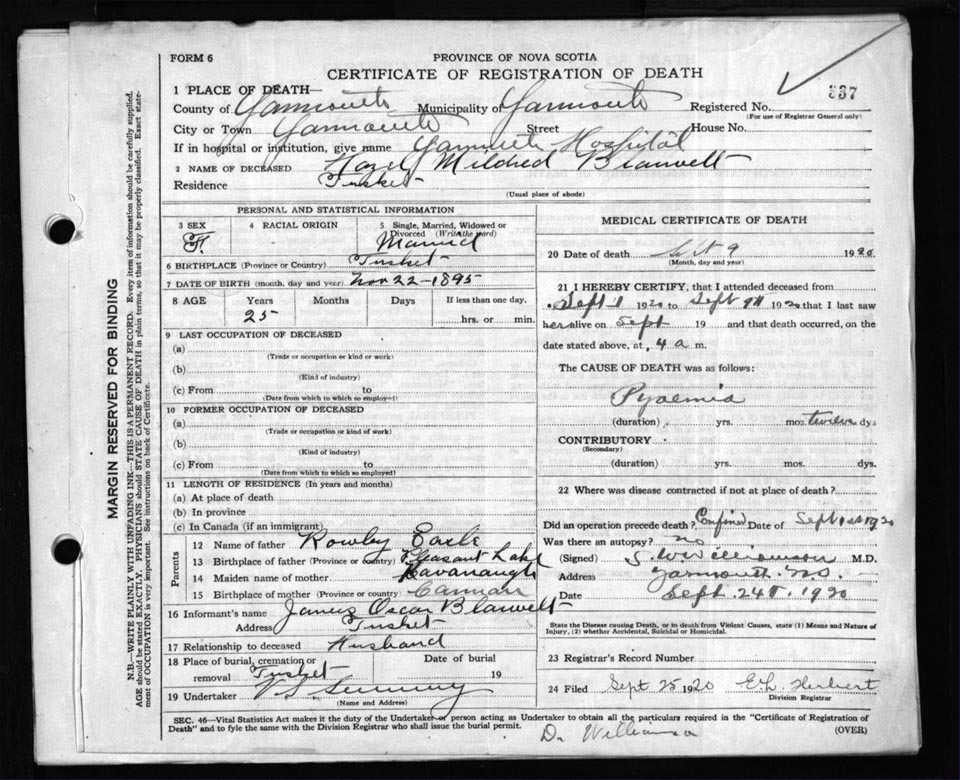 FORM 6
PROVINCE OF NOVA SCOTIA
CERTIFICATE OF REGISTRATION OF DEATH
1 PLACE OF DEATH—
County of Yarmouth Municipality of Yarmouth Registered No. 337
(For use of Registrar General only)
City or Town Yarmouth Street House No.
If in hospital or institution, give name Yarmouth Hospital
2 NAME OF DECEASED Hazel Mildred Blauvelt
Residence Tusket
(Usual place of abode)
PERSONAL AND STATISTICAL INFORMATION
3 SEX 4 RACIAL ORIGIN 5 Single, Married, Widowed or Divorced (Write the word)
F. Married
6 BIRTHPLACE (Province or Country) Tusket
7 DATE OF BIRTH (month, day and year) Nov 22 - 1895
8 AGE Years Months Days If less than one day,
25 hrs. or min.
9 LAST OCCUPATION OF DECEASED
(a)
(Trade or occupation or kind or work)
(b)
(Kind of industry)
(c) From to
(Date from which to which so employed)
10 FORMER OCCUPATION OF DECEASED
(a)
(Trade or occupation or kind or work)
(b)
(Kind of industry)
(c) From to
(Date from which to which so employed)
11 LENGTH OF RESIDENCE (In years and months)
(a) At place of death
(b) In province
(c) In Canada (if an immigrant)
Parents
12 Name of father Rowley Earle
13 Birthplace of father (Province or country) Pleasant Lake
14 Maiden name of mother Kavanaugh
15 Birthplace of mother (Province or country) Cannan
16 Informant's name James Oscar Blauvelt
Address Tusket
17 Relationship to deceased Husband
18 Place of burial, cremation or removal Tusket Date of burial 19
19 Undertaker V S Sweeny
(Name and Address)
MEDICAL CERTIFICATE OF DEATH
20 Date of death Sept 9 1920
(Month, day and year)
21 I HEREBY CERTIFY, that I attended deceased from
Sept 1 1920 to Sept 9th 1920 that I last saw
her alive on Sept 19 and that death occurred, on the
date stated above, at 4 a m.
The CAUSE OF DEATH was as follows:
Pyaemia
(duration) yrs. mos. twelve dys
CONTRIBUTORY
(Secondary)
(duration) yrs. mos. dys.
22 Where was disease contracted if not at place of death?
Did an operation precede death? Confined Date of Sept 1st 1920
Was there an autopsy? no
(Signed) S. W. Williamson M.D.
Address Yarmouth. N.S.
Date Sept. 24th. 1920
State the Disease causing Death, or in death from Violent Causes, state (1) Means and Nature of
Injury, (2) whether Accidental, Suicidal or Homicidal.
23 Registrar's Record Number
24 Filed Sept 25 1920 E L Herbert
Division Registrar
SEC. 46—Vital Statistics Act makes it the duty of the Undertaker or person acting as Undertaker to obtain all the particulars required in the "Certificate of Registration of
Death" and to fyle the same with the Division Registrar who shall issue the burial permit.
(OVER)
Dr Williamson
MARGIN RESERVED FOR BINDING
N.B.—WRITE PLAINLY WITH UNFADING INK—THIS IS A PERMANENT RECORD. Every item of information should be carefully supplied.
AGE should be stated EXACTLY. PHYSICIANS should STATE CAUSE OF DEATH in plain terms, so that it may be properly classified. Exact state-
ment of OCCUPATION is very important. See instructions on back of Certificate.